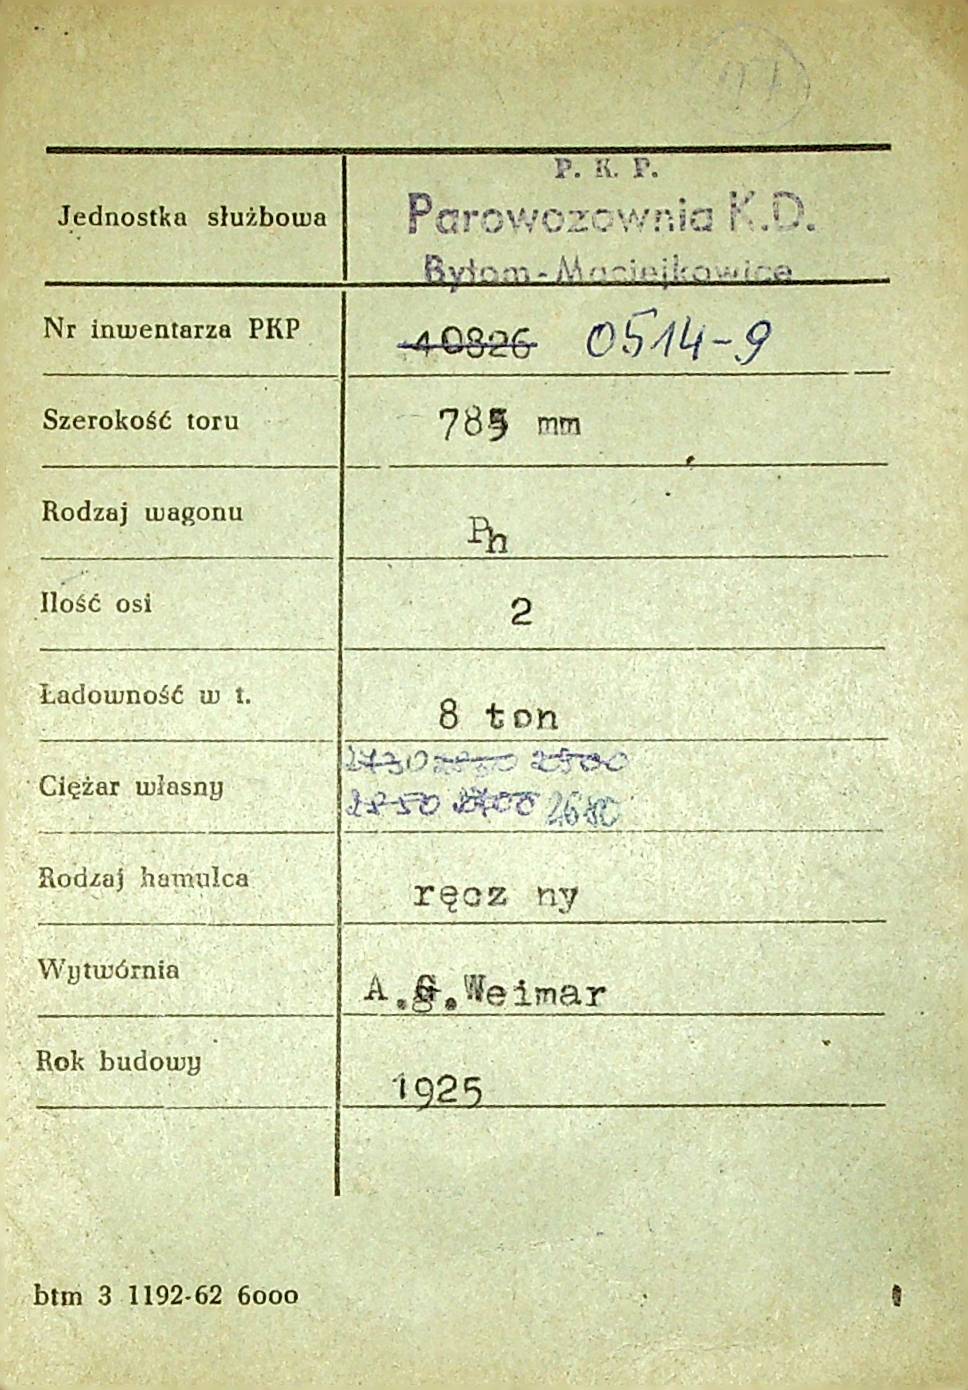 P. K. P.
Jednostka służbowa Parowozownia K.D.
Bytom-Maciejkowice
Nr inwentarza PKP 40826 0514-9
Szerokość toru 785 mm
Rodzaj wagonu Ph
Ilość osi 2
Ładowność w t. 8 ton
2730 2500
Ciężar własny
2850 2700 2680
Rodzaj hamulca ręcz ny
Wytwórnia A.G.Weimar
Rok budowy 1925
btm 3 1192-62 6000